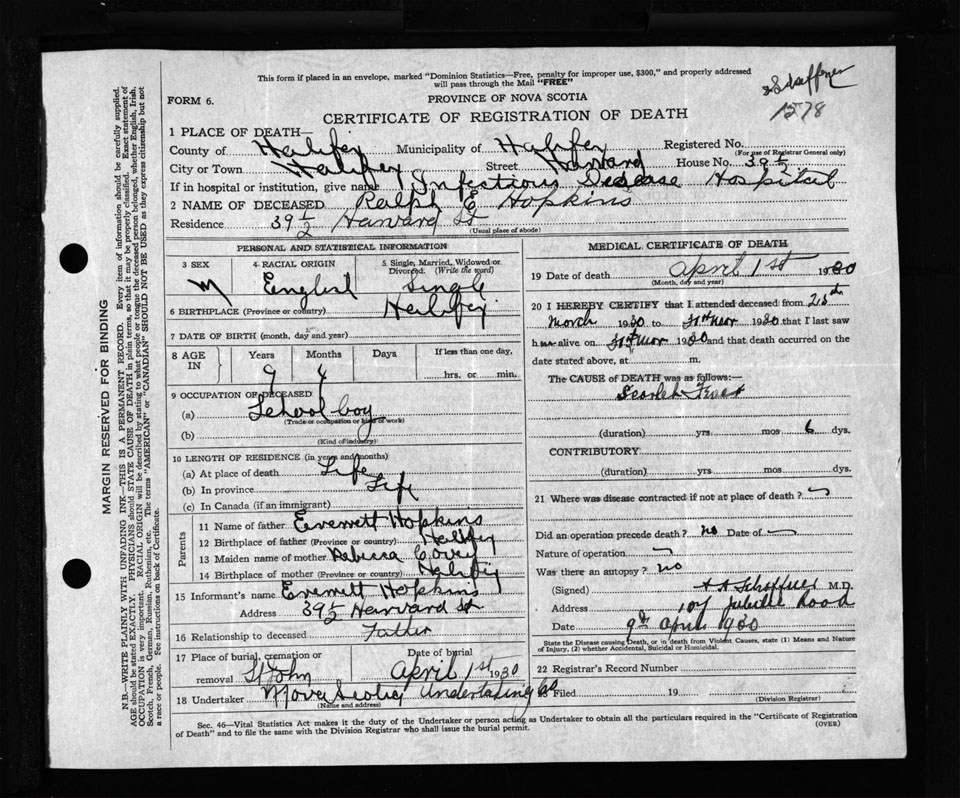 This form if placed in an envelope, marked "Dominion Statistics—Free, penalty for improper use, $300," and properly addressed
will pass through the Mail "FREE"
FORM 6.
PROVINCE OF NOVA SCOTIA
1578
CERTIFICATE OF REGISTRATION OF DEATH
1 PLACE OF DEATH—
County of Halifax Municipality of Halifax Registered No.
(For use of Registrar General only)
City or Town Halifax Street Harvard House No. 39 1/2
If in hospital or institution, give name Infectious Disease Hospital
2 NAME OF DECEASED Ralph E Hopkins
Residence 39 1/2 Harvard St
(Usual place of abode)
PERSONAL AND STATISTICAL INFORMATION
3 SEX M
4 RACIAL ORIGIN English
5 Single, Married, Widowed or Divorced. (Write the word) Single
6 BIRTHPLACE (Province or country) Halifax
7 DATE OF BIRTH (month, day and year)
8 AGE IN Years Months Days If less than one day,
9 4 hrs. or min.
9 OCCUPATION OF DECEASED
(a) School boy
(Trade or occupation or kind of work)
(b)
(Kind of industry)
10 LENGTH OF RESIDENCE (in years and months)
(a) At place of death Life
(b) In province Life
(c) In Canada (if an immigrant)
Parents
11 Name of father Everrett Hopkins
12 Birthplace of father (Province or country) Halifax
13 Maiden name of mother Rebecca Covey
14 Birthplace of mother (Province or country) Halifax
15 Informant's name Everrett Hopkins
Address 39 1/2 Harvard St
16 Relationship to deceased Father
17 Place of burial, cremation or removal St John
Date of burial April 1st 1930
18 Undertaker Nova Scotia Undertaking Co
(Name and address)
MEDICAL CERTIFICATE OF DEATH
19 Date of death April 1st 1930
(Month, day and year)
20 I HEREBY CERTIFY that I attended deceased from 25th
March 1930 to 31st Mar 1930 that I last saw
h im alive on 31st Mar 1930 and that death occurred on the
date stated above, at m.
The CAUSE OF DEATH was as follows:
Scarlet Fever
(duration) yrs. mos 6 dys.
CONTRIBUTORY
(duration) yrs. mos. dys.
21 Where was disease contracted if not at place of death?
Did an operation precede death? no Date of
Nature of operation
Was there an autopsy? no
(Signed) M.D.
Address 107 Road
Date 9th April 1930
State the Disease causing Death, or in death from Violent Causes, state (1) Means and Nature
of Injury, (2) whether Accidental, Suicidal or Homicidal.
22 Registrar's Record Number
Filed 19
(Division Registrar)
Sec. 46—Vital Statistics Act makes it the duty of the Undertaker or person acting as Undertaker to obtain all the particulars required in the "Certificate of Registration
of Death" and to file the same with the Division Registrar who shall issue the burial permit.
(OVER)
MARGIN RESERVED FOR BINDING
N.B.—WRITE PLAINLY WITH UNFADING INK—THIS IS A PERMANENT RECORD. Every item of information should be carefully supplied.
AGE should be stated EXACTLY. PHYSICIANS should STATE CAUSE OF DEATH in plain terms, so that it may be properly classified. Exact statement of
OCCUPATION is very important. RACIAL ORIGIN will be described by stating to what people or tongue the deceased person belonged, whether English, Irish,
Scotch, French, German, Russian, Ruthenian, etc. The terms "AMERICAN" or "CANADIAN" SHOULD NOT BE USED as they express citizenship but not
a race or people. See instructions on back of Certificate.